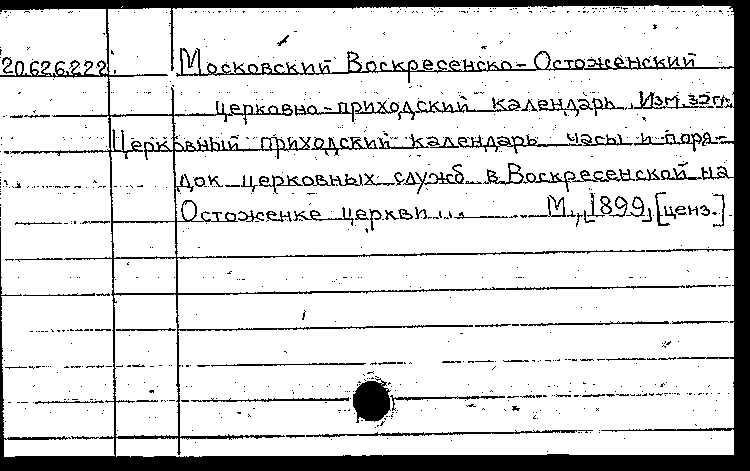 20.62.6.222. Московский Воскресенско-Остоженский
церковно-приходский календарь. Изм. загл.
Церковный приходский календарь часы и поря-
док церковных служб в Воскресенской на
Остоженке церкви... М., [1899, [ценз.]